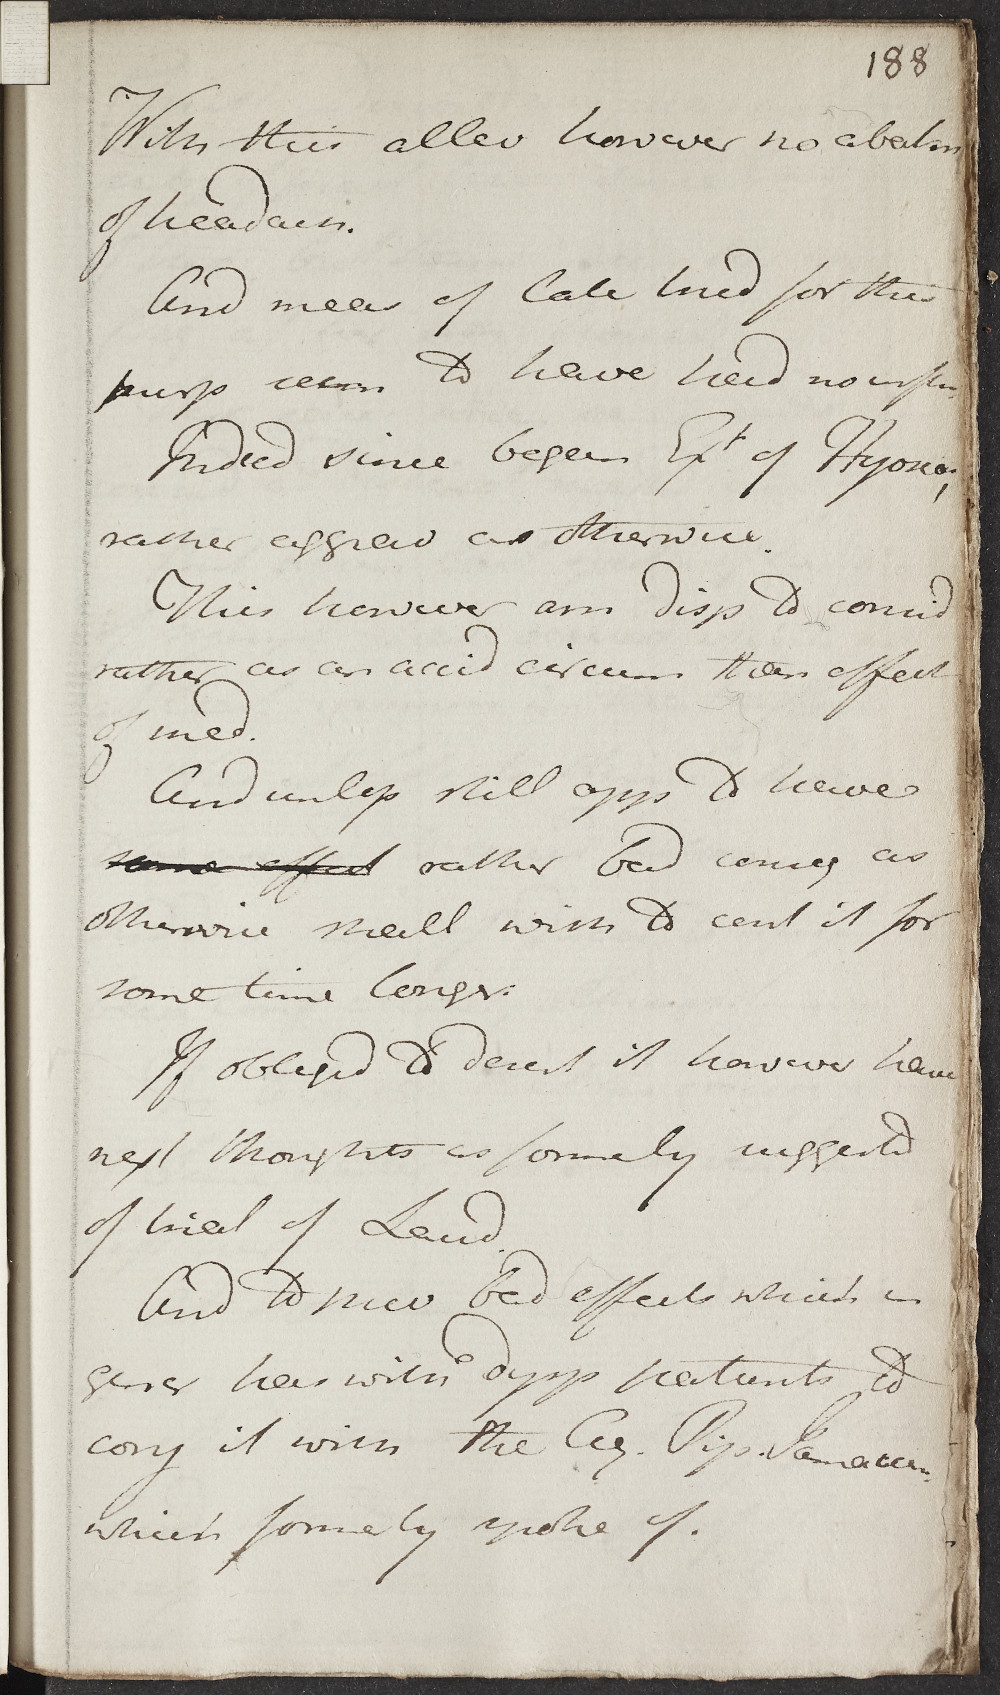 188
With this allev however no abatm
of headach.
And means of Cata tried for this
purp seem to have had no infn
Indeed since began Ext of Hyoscy
rather aggrav as otherwise.
This however am disp to consid
rather as an accid circum than effect
of med.
And unless still apps to have
some effect rather bad conseq as
otherwise shall wish to cont it for
some time longer.
If obliged to desert it however have
next thoughts as formerly suggested
of trial of Laud
And to prev bad effects which in
gener has with dysp patients to
conj it with the Aq. Pip. Jamaicen.
which formerly spoke of.